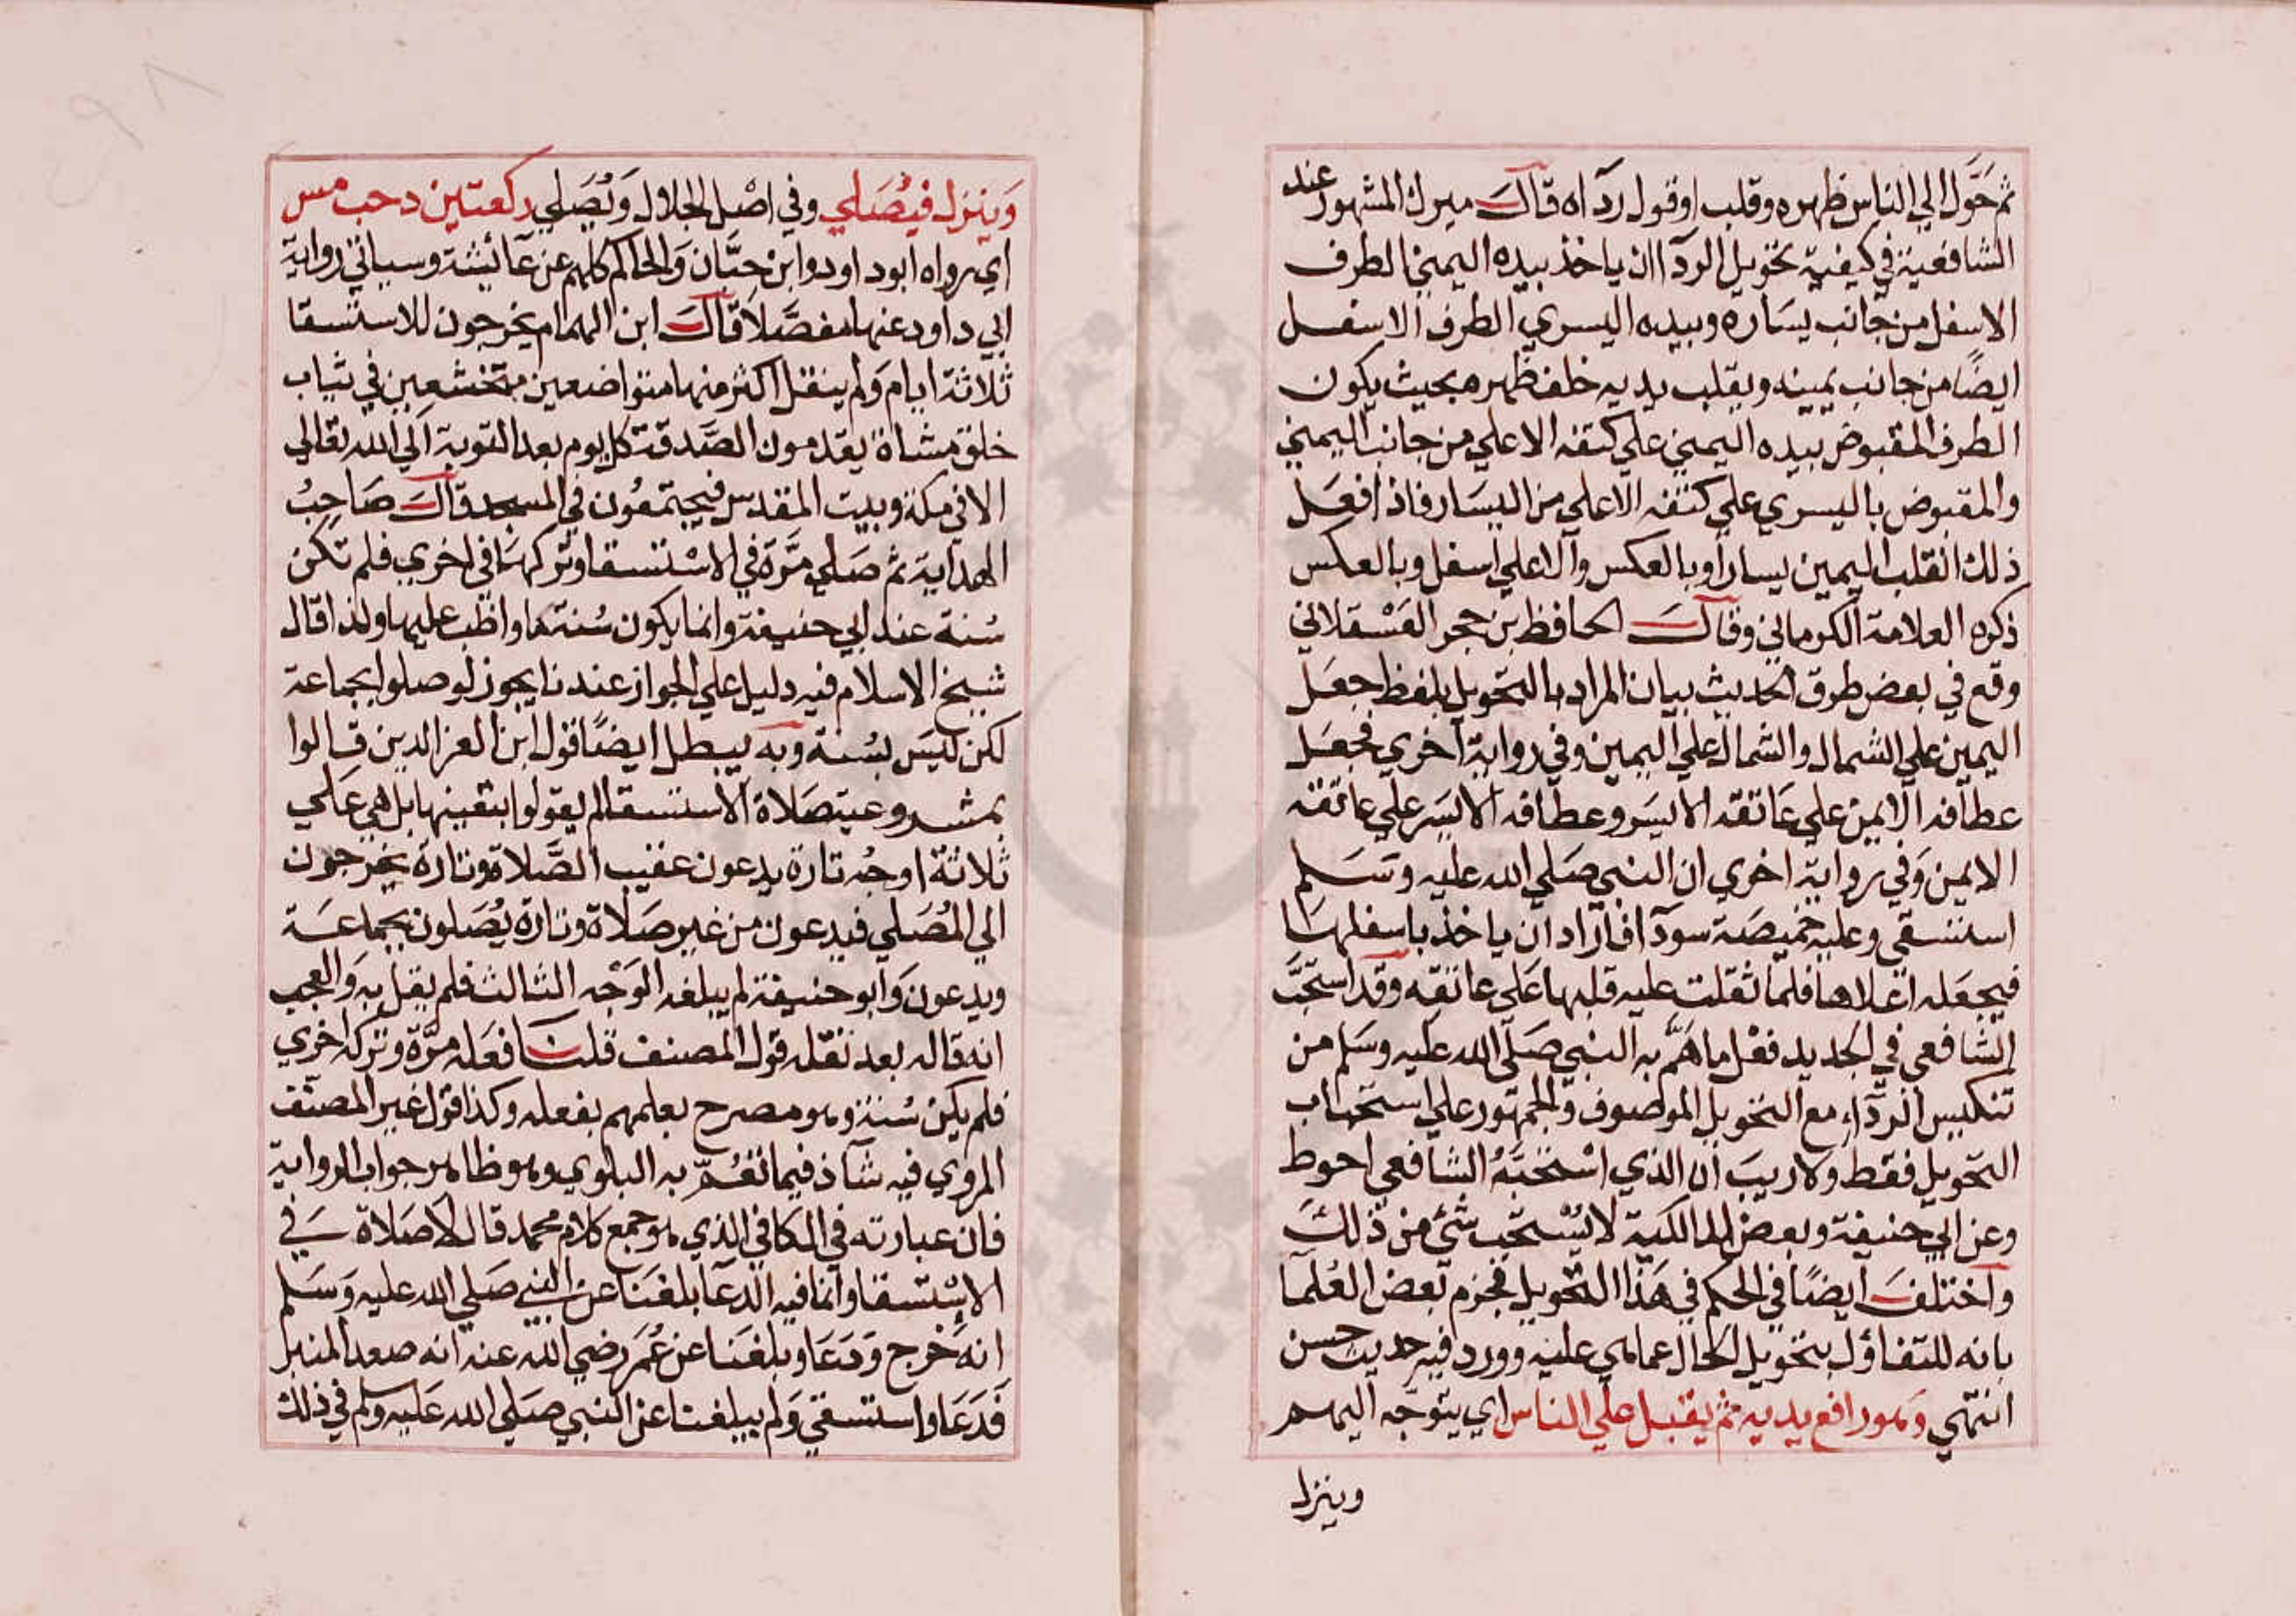 ثم حَوَّل الي الناس ظهره وقلب او قول ردآاه قال ميرك المشهور عند
الشافعية في كيفية تحويل الردآ ان ياخذ بيده اليمني الطرف
الاسفل من جانب يساره وبيده اليسري الطرف الاسفل
ايضًا من جانب يمينه ويقلب يديه خلف ظهره بحيث يكون
الطرف المقبوض بيده اليمني علي كتفه الاعلي من جانب اليمني
والمقبوض باليسري علي كتفه الاعلي من اليسار فاذا فعل
ذلك انقلب اليمين يسارا وبالعكس والاعلي اسفل وبالعكس
ذكره العلامة الكرماني وقال الحافظ بن حجر العَسْقلاني
وقع في بعض طرق الحديث بيان المراد بالتحويل بلفظ جعل
اليمين علي الشمال والشمال علي اليمين وفي رواية اخري فجعل
عطافه الايمن علي عاتقه الايسر وعطافه الايسر علي عاتقه
الايمن وفي رواية اخري ان النبي صلي الله عليه وسلم
استسقي وعليه خميصة سودآ فاراد ان ياخذ باسفلها
فيجعله اعلاها فلما ثقلت عليه قلبها علي عاتقه وقد استحَبَّ
الشافعي في الجديد فعل ما هَمَّ به النبي صلي الله عليه وسلم من
تنكيس الردآء مع التحويل الموصوف والجمهور علي استحباب
التحويل فقط ولا ريبَ ان الذي اسْتحبَّهُ الشافعي احوط
وعن ابي حنيفة وبعض المالكية لا يُسْتحب شئ من ذلك
واختلف ايضًا في الحكم في هذا التحويل فجزم بعض العُلمآ
بانه للتفاؤل بتحويل الحال عما هي عليه وورد فيه حديث حسن
انتهي وهو رافع يديه ثم يقبل علي الناس اي يتوجه اليهم
وينزل
وَينزل فيُصَلي وفي اصْل الجلال وَيُصَلي ركعتين د حب مس
اي رواه ابود اود وابن حبَّان وَالحاكم كلهم عن عائيشة وسياتي رواية
ابي داود عنها مفصَّلا قال ابن الهمام يخرجون للاستسقا
ثلاثة ايام وَلم ينقل اكثر منها متواضعين متخشعين في ثياب
خلق مشاة يقدمون الصَّدقة كل يوم بعد التوبة الي الله تعالي
الا في مكة وبيت المقدس فيجتمعُون في المسجد قال صَاحبُ
الهداية ثم صَلي مرَّة في الاسْتسقا وتركها في اخري فلم تكن
سُنة عند ابي حنيفة وانما يكون سُنة ما واظب عليها ولذا قال
شيخ الاسلام فيه دليل علي الجواز عندنا يجوز لو صلوا بجماعة
لكن ليَس بسُنة وبه يبطل ايضًا قول ابن العز الدين قالوا
بمشروعية صَلاة الاستسقا لم يقولوا بتعينها بل هي علي
ثلاثة اوجُه تارة يدعون عقيب الصَّلاة وتارة يخرجون
الي المُصَلي فيدعون من غير صَلاة وتارة يُصَلون بجماعَة
ويدعون وَابو حنيفة لم يبلغه الوَجْه الثالث فلم يقل به وَالعجب
انه قاله بعد نقله قول المصنف قلنا فعَله مرَّة وتركه اخري
فلم يكن سُنة وهو مصرح بعلمهم بفعله وكذا قول غير المصنف
المروي فيه شآذ فيما تعُمّ به البلوي وهو ظاهر جواب الرواية
فان عبارته في الكافي الذي هو جمع كلام محمد قال لا صَلاة في
الاسْتسقا وانما فيه الدعآ بلغنا عن النبي صلي الله عليه وسلم
انه خرج وَدَعَا وبلغنا عن عُمَر رضي الله عنه انه صعد المنبر
فَدَعَا واستسقي وَلم يبلغنا عن النبي صلي الله عليه وسلم في ذلك